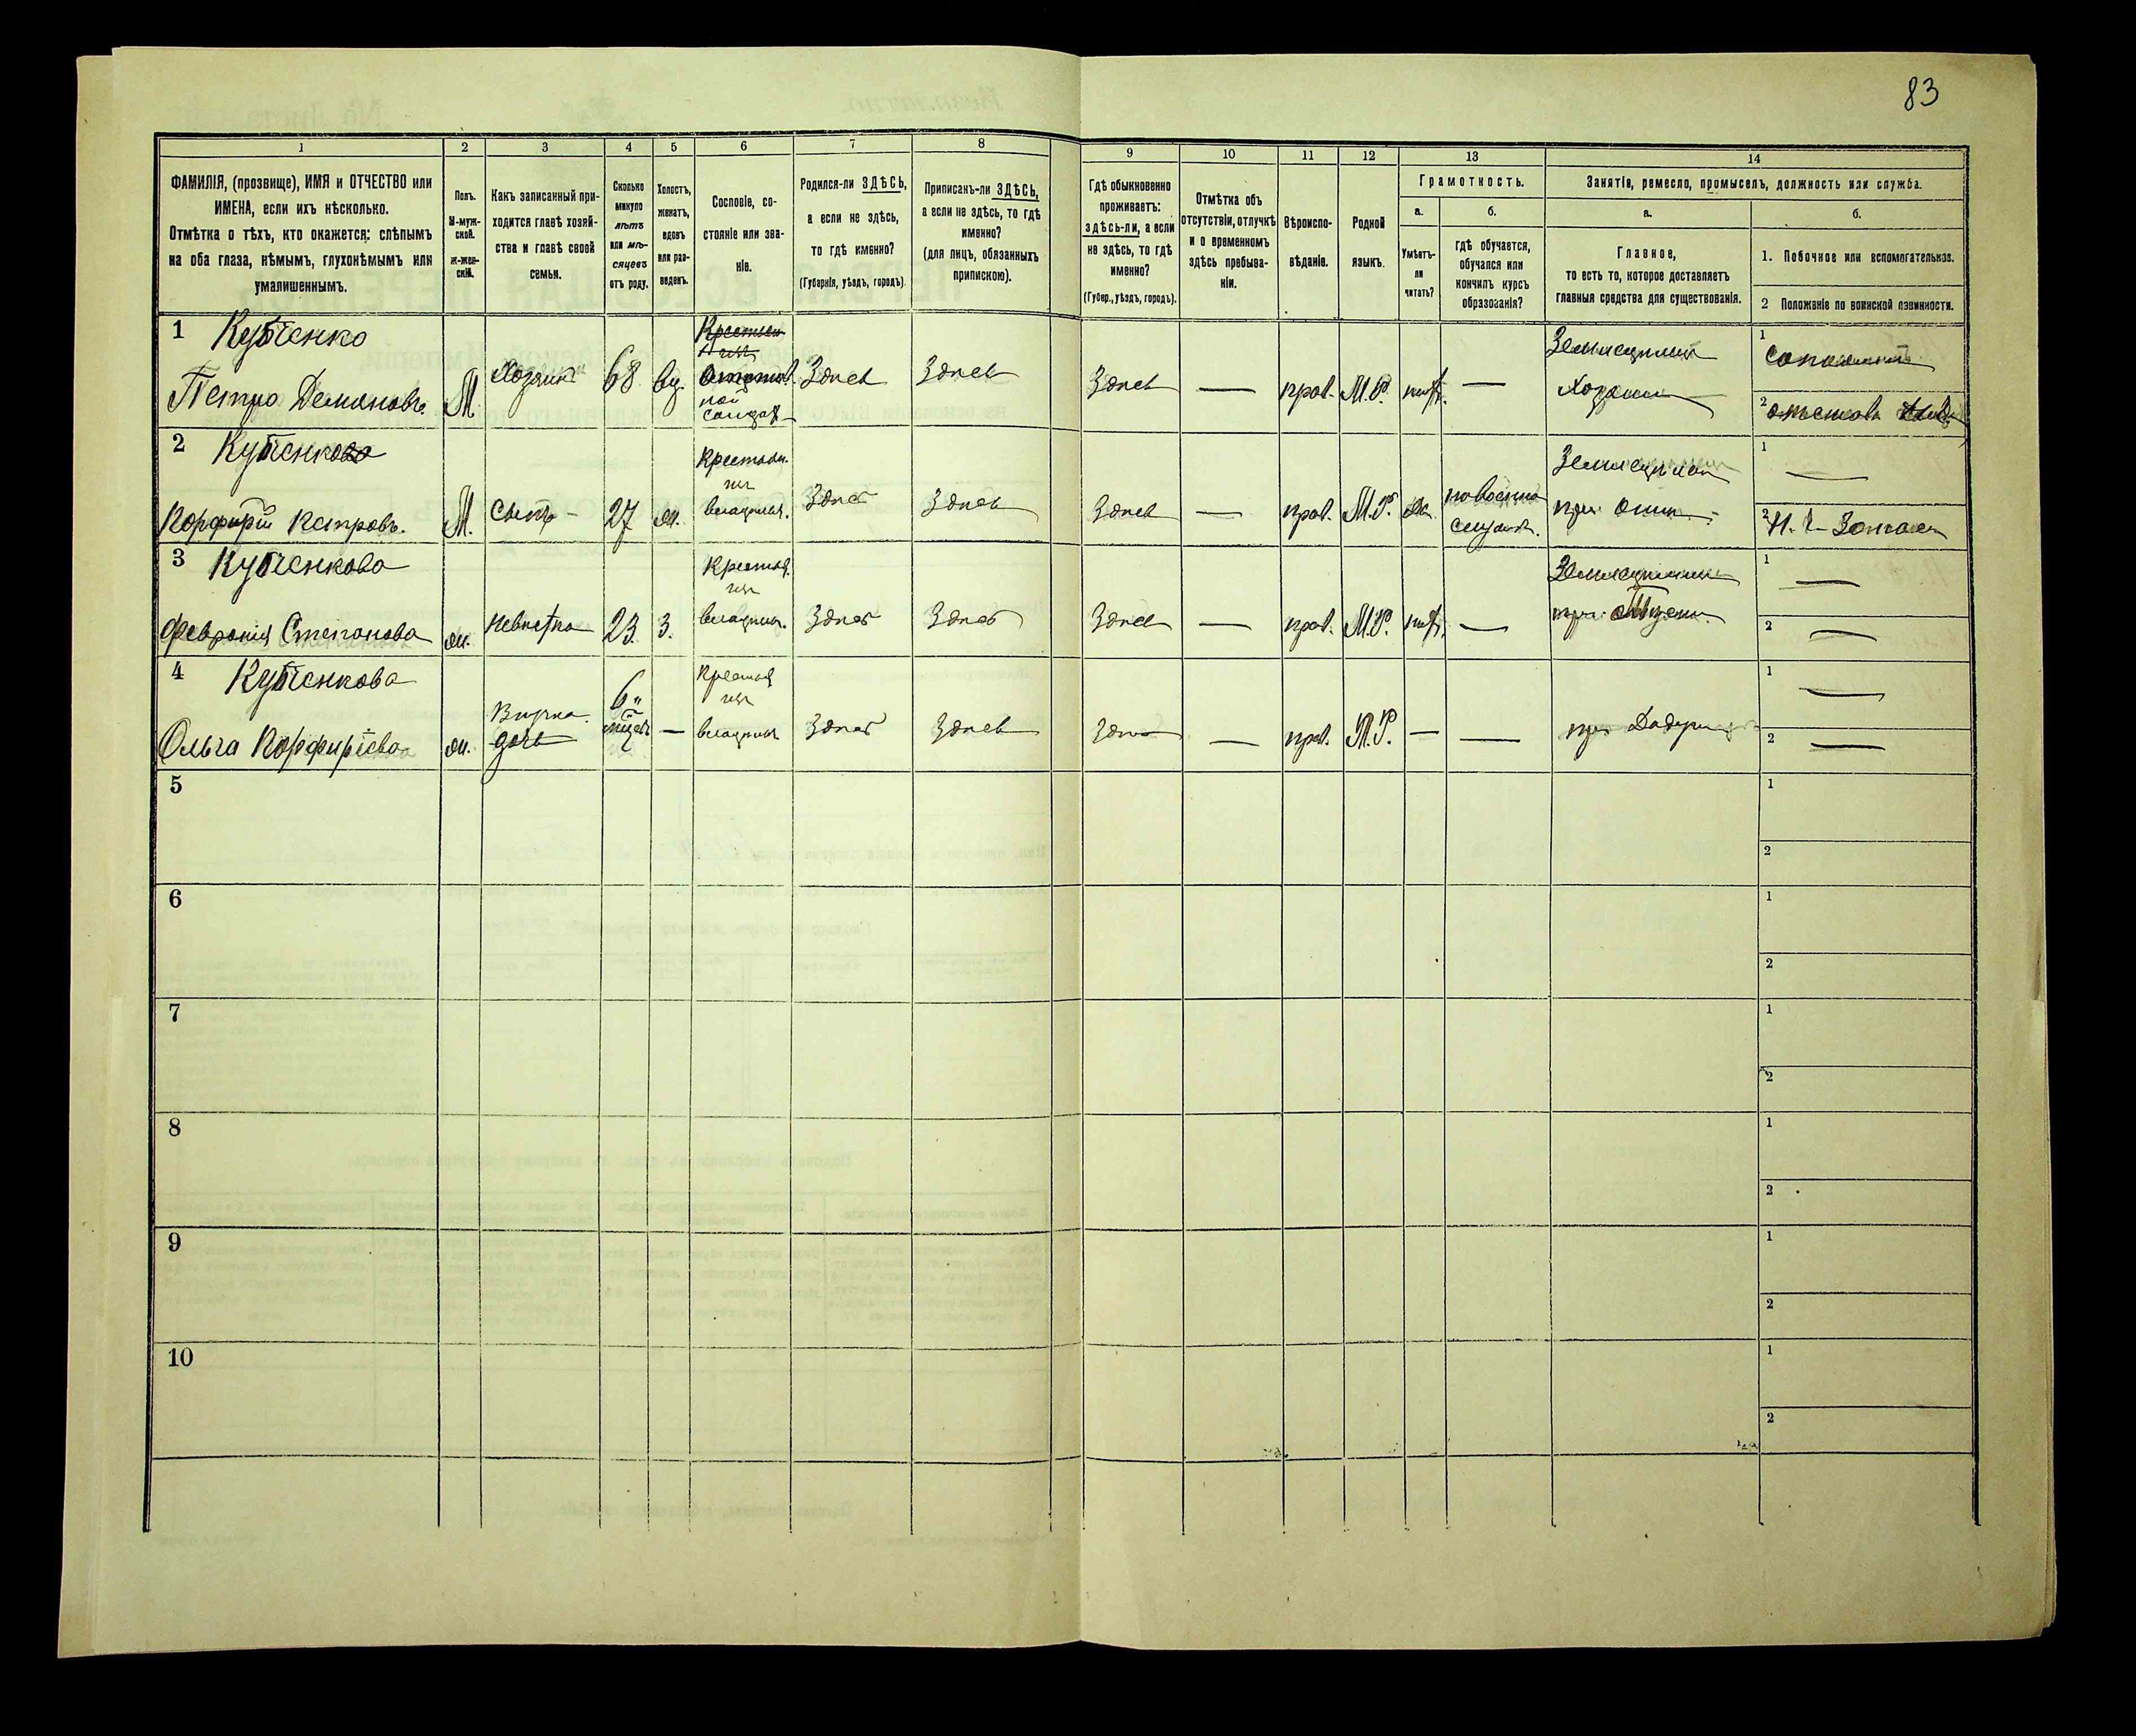 83
1 2 3 4 5 6 7 8 9 10 11 12 13 14
ФАМИЛІЯ, (прозвище), ИМЯ и ОТЧЕСТВО или
ИМЕНА, если ихъ нѣсколько.
Отмѣтка о тѣхъ, кто окажется: слѣпымъ
на оба глаза, нѣмымъ, глухонѣмымъ или
умалишеннымъ.
Полъ.
М-муж-
ской.
ж-жен-
скій.
Какъ записанный при-
ходится главѣ хозяй-
ства и главѣ своей
семьи.
Сколько
минуло
лѣтъ
или мѣ-
сяцевъ
отъ роду.
Холостъ,
женатъ,
вдовъ
или раз-
веденъ.
Сословіе, со-
стояніе или зва-
ніе.
Родился-ли ЗДѢСЬ,
а если не здѣсь,
то гдѣ именно?
(Губернія, уѣздъ, городъ).
Приписанъ-ли ЗДѢСЬ,
а если не здѣсь, то гдѣ
именно?
(для лицъ, обязанныхъ
припискою).
Гдѣ обыкновенно
проживаетъ:
здѣсь-ли, а если
не здѣсь, то гдѣ
именно?
(Губер., уѣздъ, городъ).
Отмѣтка объ
отсутствіи, отлучкѣ
и о временномъ
здѣсь пребыва-
ніи.
Вѣроиспо-
вѣданіе.
Родной
языкъ.
Грамотность.
а.
Умѣетъ-
ли
читать?
б.
гдѣ обучается,
обучался или
кончилъ курсъ
образованія?
Занятіе, ремесло, промыселъ, должность или служба.
а.
Главное,
то есть то, которое доставляетъ
главныя средства для существованія.
б.
1. Побочное или вспомогательное.
2 Положеніе по воинской повинности.
1 Кубченко
Петро Демяновъ. М. Хозяинъ 68 вд. Здѣсь Здѣсь Здѣсь — прав. М.Р. нѣтъ. — Хозяинъ
1
2
2
Порфирій Петровъ. М. сынъ - 27 ж. Крестьян. Здѣсь Здѣсь Здѣсь — прав. М.Р. да
1 —
2
3 Кубченкова
Февронія Степанова ж. невѣстка 23. з. Здѣсь Здѣсь Здѣсь — прав. М.Р. нѣтъ. —
1 —
2 —
4 Кубченкова
Ольга Порфиріева ж. Внучка. дочь 6 — Здѣсь Здѣсь Здѣсь — прав. М.Р. — — при
1 —
2 —
5
1
2
6
1
2
7
1
2
8
1
2
9
1
2
10
1
2